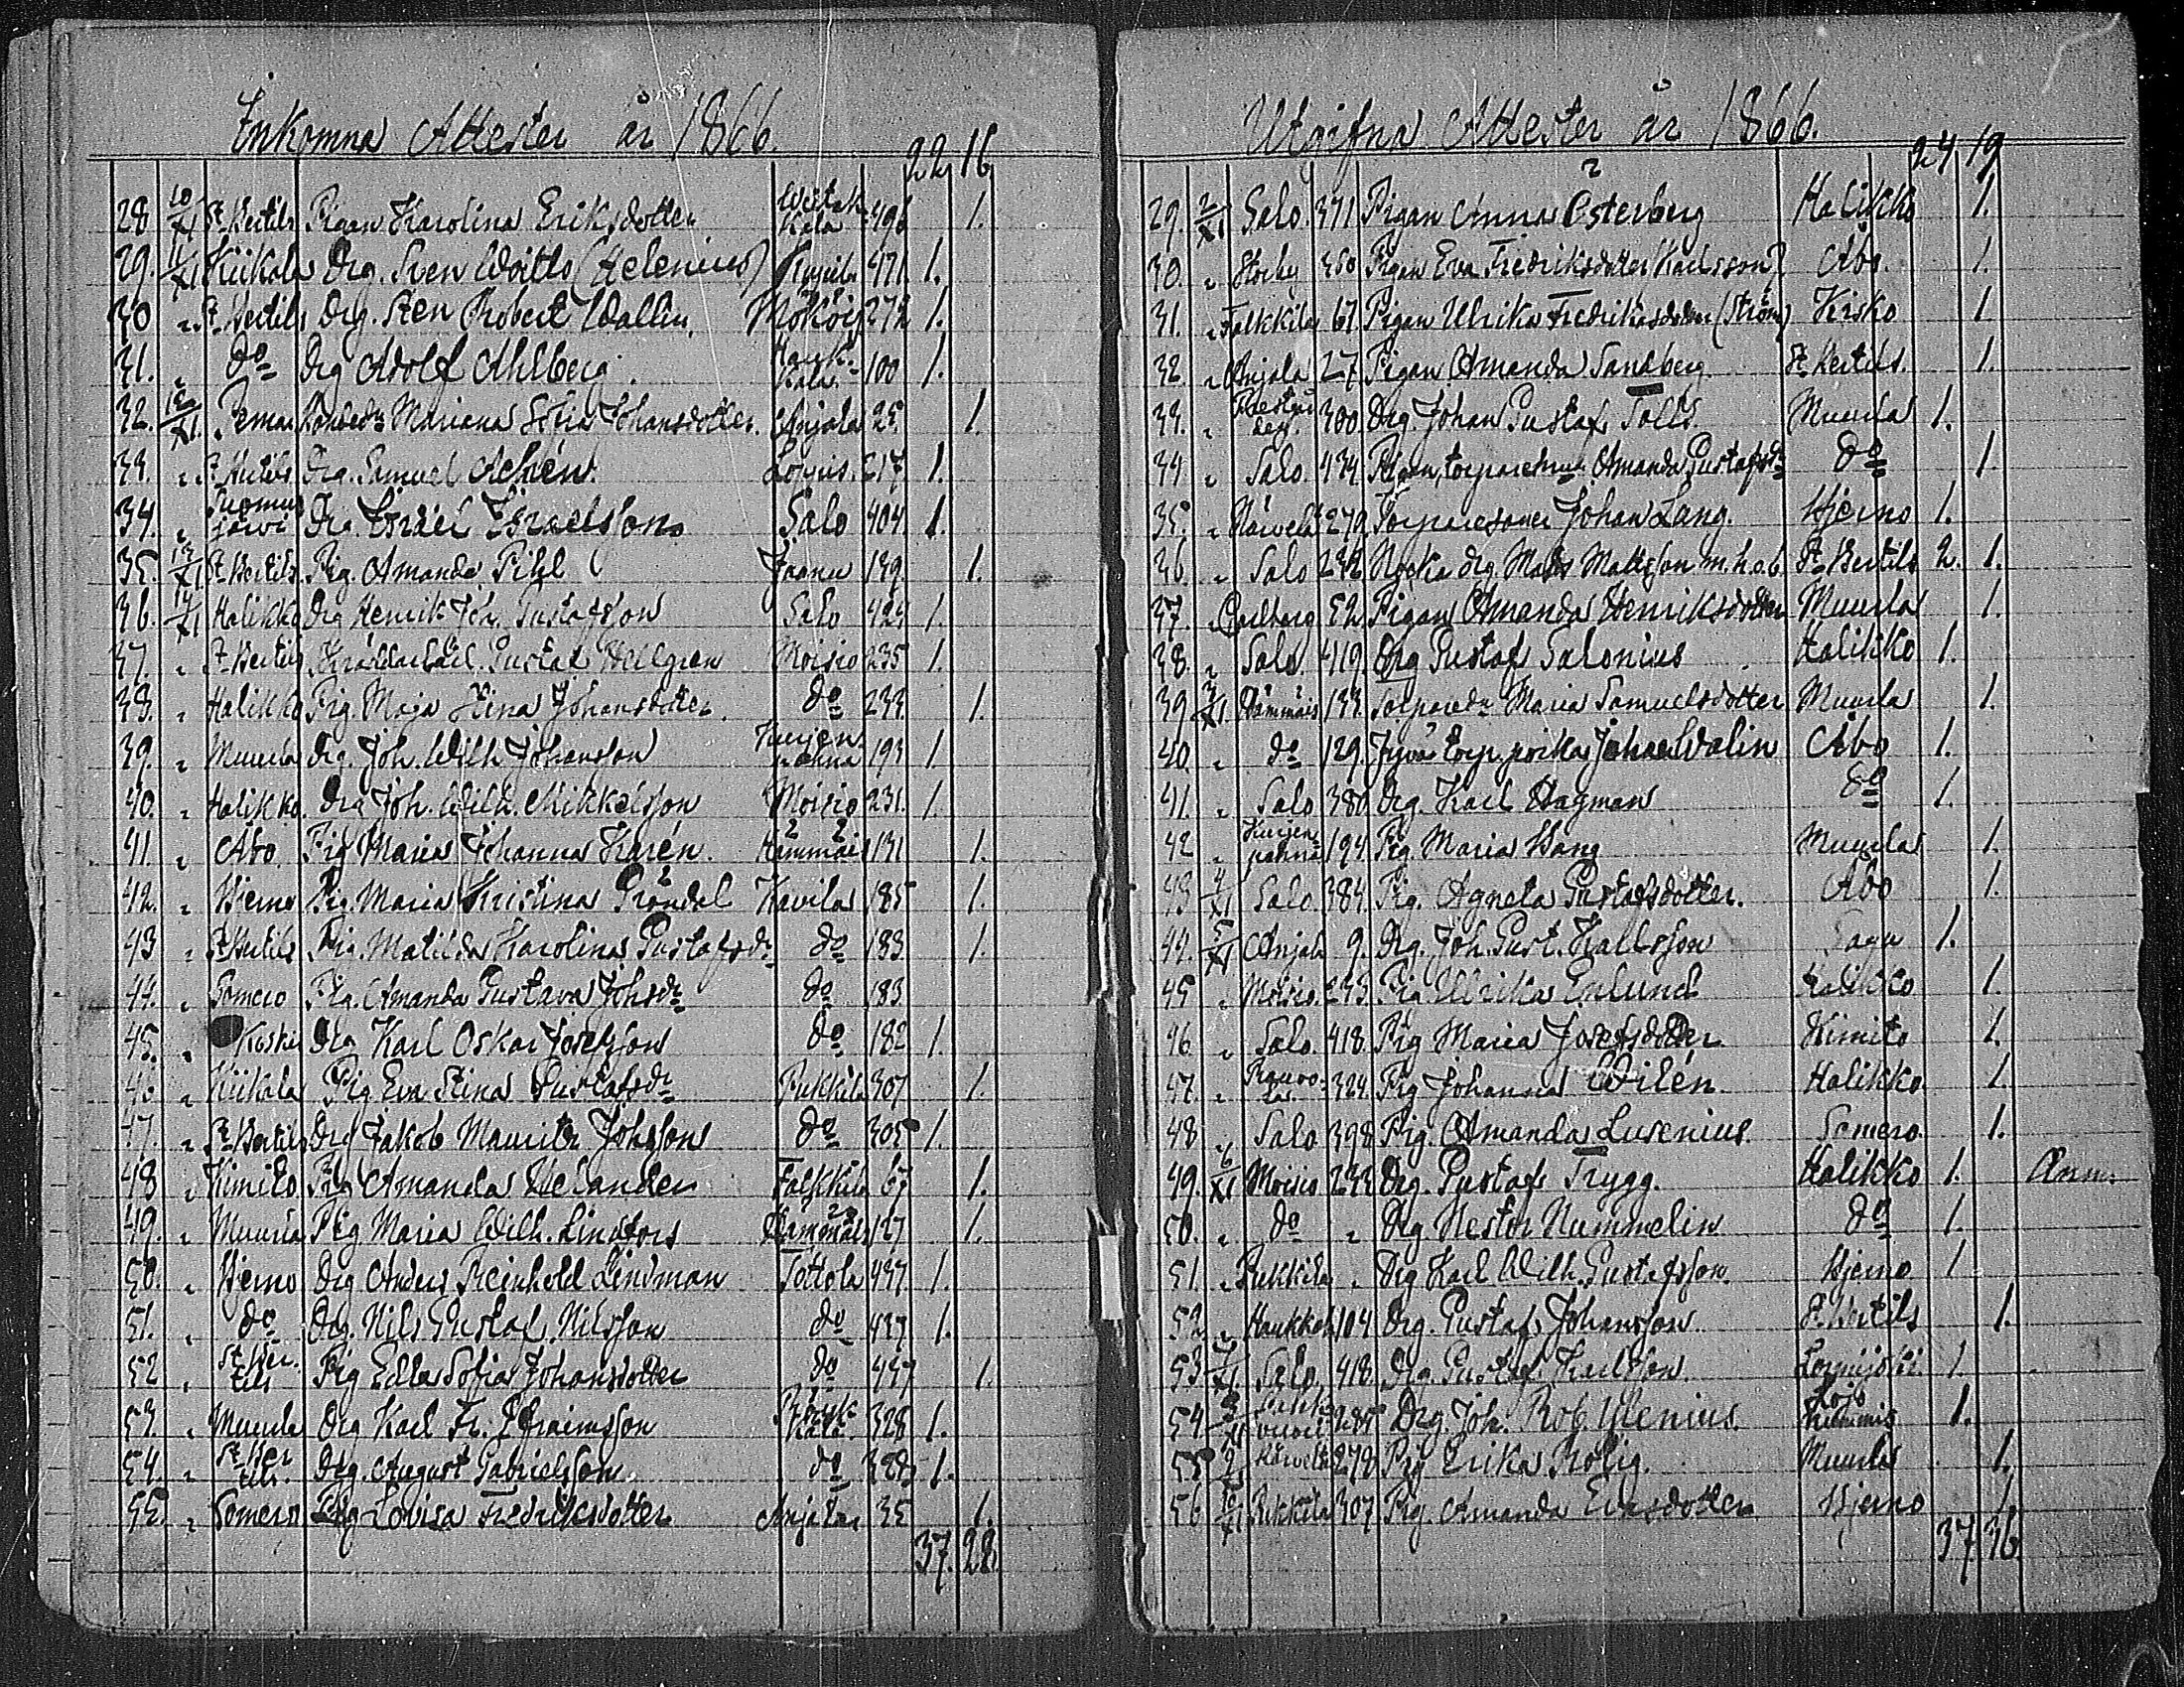 Inkomna Attester år 1866.
22 16
28 10/XI St Bertils Pigan Karolina Eriksdotter Kala 496 1.
29. 11/XI Kiikala Drg. Sven (Helenius) 471. 1.
30 " St Bertils Drg. Sten Robert Wallin 272 1.
31. " do Drg Adolf Ahlberg. Kala 100 1.
32. 12/XI Pemar Mariana Sofia Johansdotter. Anjala 25. 1.
33. " St Bertils Drg. Samuel Achén. 217 1.
34. " Suomusjärvi Drg. Israel Israelsson Salo 404. 1.
35. 13/XI St Bertils Pig. Amanda Pihl 139. 1.
36. 14/XI Halikko Drg Henrik Joh. Gustafsson Salo 424 1.
37. " St Bertils Gustaf Hellgren Moisio 235 1.
38. " Halikko Pig. Maja Stina Johansdotter. do 233. 1.
39. " Muurla Drg. Joh. Wilh. Johansson Kurjenpahna 193 1.
40. " Halikko. Drg Joh. Wilh. Mikkelsson Moisio 231. 1.
41. " Åbo Pig Maria Johanna Karén. Hämmäis 131 1.
42. " Bjerno Pig. Maria Kristina Gröndal Kavila 185 1.
43 " St Bertils Pig. Matilda Karolina Gustafsdr do 183. 1.
44. " Somero Pig. Amanda Gustava Johsdr do 183.
45. " Koskis Drg Karl Oskar Josefsson do 182 1.
46 " Kiikala Pig Eva Stina Gustafsdr Pukkila 307 1.
47. " St Bertils Drg Jakob Mauritz Johsson do 305 1.
48 " Kimito Pig Amanda Helander Falkkila 67 1.
49. " Muurla Pig Maria Wilh. Lindfors Hämmäis 127 1.
50. " Bjerno Drg Anders Reinhold Lindman Tottola 437 1.
51. " do Drg. Nils Gustaf Nilsson do 437 1.
52 " St Bertils Pig Edla Sofia Johansdotter do 437 1.
53. " Muurla Drg Karl Fr. Efraimsson 328 1.
54. " St Bertils. Drg. August Gabrielsson do 328 1.
55. " Somero Pig Lovisa Fredriksdotter Anjala 35 1.
37. 28.
Utgifna Attester år 1866.
24 19
29. 2/XI Salo. 371 Pigan Anna Österberg Halikko 1.
30. " 350 Pigan Eva Fredriksdotter Karlsson Åbo. 1.
31. " Falkkila 67 Pigan Ulrika Fredriksdotter (Ström) Kisko 1.
32. " Anjala 27 Pigan Amanda Sandberg. St Bertils. 1.
33. " 300 Drg. Johan Gustaf Muurla 1.
34 " Salo. 434 Amanda Gustafsdr do 1.
35. " Kärvelä 279. Torparesonen Johan Lang. Bjerno 1.
36. " Salo 232 Drg Mats Mattsson m.h.o.b. St Bertils 2. 1.
37. " Carlberg 52. Pigan Amanda Henriksdotter Muurla 1.
38. " Salo. 419. Drg Gustaf Salonius Halikko 1.
39. 3/XI Hämmäis 133. Torparedr Maria Samuelsdotter Muurla 1.
40. " do 129. Johan Walin Åbo 1.
41. " Salo 380 Drg. Karl Hagman do 1.
42 " Kurjenpahna 194. Pig. Maria Hang Muurla 1.
43 4/XI Salo. 384. Pig. Agneta Gustafsdotter. Åbo 1.
44. 5/XI Anjala 9. Drg. Joh. Gust. Kallsson Sagu 1.
45 " Moisio. 233. Pig. Ulrika Enlund Halikko 1.
46. " Salo. 418. Pig Maria Josefsdotter Kimito 1.
47. " 324. Pig Johanna Wilén. Halikko. 1.
48 " Salo 398 Pig. Amanda Lurenius. Somero. 1.
49. 6/XI Moisio 232 Drg. Gustaf Trygg. Halikko 1. Anm.
50. " do " Drg Nestor Nummelin do 1.
51. " Pukkila " Drg Karl Wilh. Gustafsson. Bjerno 1
52 " Haukkala 104 Drg. Gustaf Johansson. St. Bertils 1.
53 7/XI Salo. 418. Drg. Gustaf Karlsson. 1.
54. 285 Drg. Joh. Rob. Ulenius. Lojo Nummis 1.
55 Kärvelä 278 Pig Erika Rolig. Muurla 1.
56. 10/XI Pukkila 307 Pig. Amanda Bjerno 1.
37. 36.